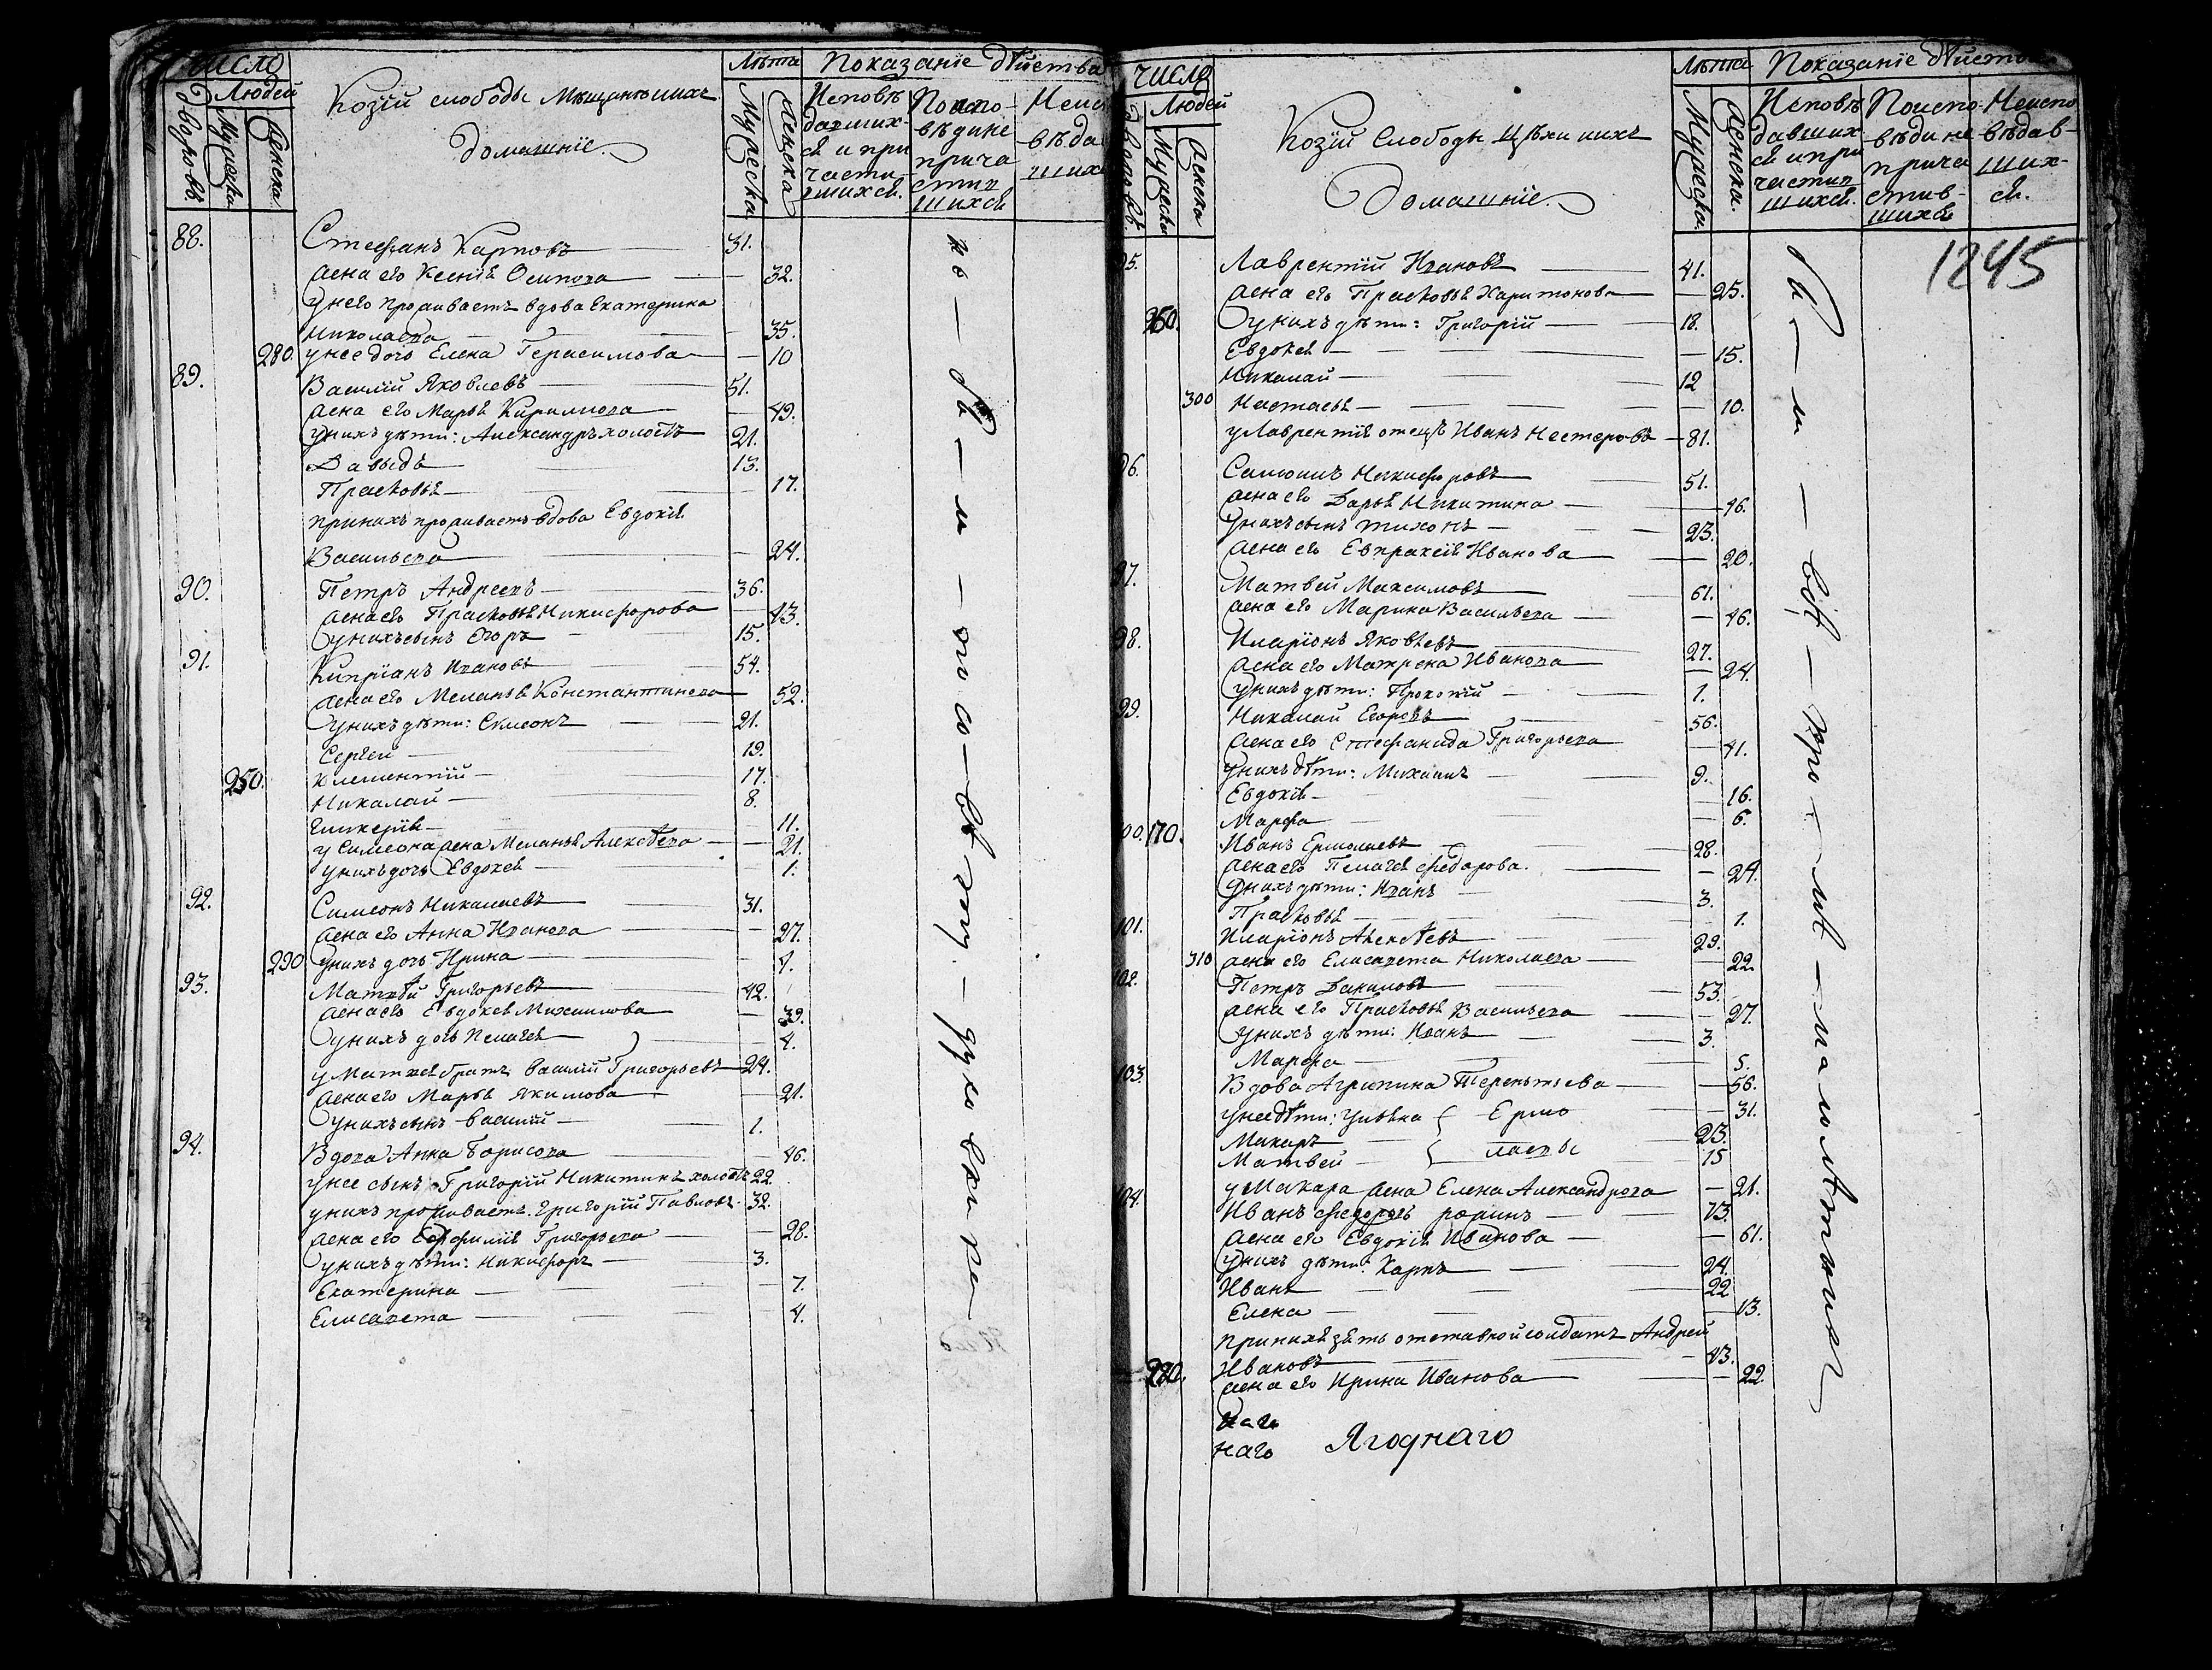 Число
Людей
Дворовъ
Мужеска
Женска
Козьи слободы Мѣщанъ и ихъ
домашніе.
Лѣта
Мужеска
Женска
Показаніе дѣйства
Исповѣ
давших-
ся и при
части-
вшихся.
По испо-
вѣди не
прича
стив
шихся
Неис
вѣда
ших
88. Стефанъ Карповъ 31.
жена его Ксенія Осипова 32.
у него проживаетъ вдова Екатерина
Николаева 35.
280. у нее дочь Елена Герасимова 10
89. Василій Яковлевъ 51.
жена его Марья Кирилова 49.
у нихъ дѣти: Александръ холостъ 21.
Давыдъ 13.
Прасковья 17.
при нихъ проживаетъ вдова Евдокія
Васильева 24.
90. Петръ Андреевъ 36.
жена его Прасковья Никифорова 43.
у нихъ сынъ Егоръ 15.
91. Кипріанъ Ивановъ 54.
жена его Меланья Константинова 52.
у нихъ дѣти: Симеонъ 21.
Сергей 19.
250. Климентій 17.
Николай 8.
Гликерія 11.
у Симеона жена Меланья Алексѣева 21.
у нихъ дочь Евдокея 1.
92. Симеонъ Николаевъ 31.
жена его Анна Иванова 27.
290 у нихъ дочь Ирина 4.
93. Матвѣй Григорьевъ 42.
жена его Евдокея Михаилова 39.
у нихъ дочь Пелагея 4.
у Матвея братъ Василій Григорьевъ 24.
жена его Марья Якимова 21.
у нихъ сынъ Василій 1.
94. Вдова Анна Борисова 46.
у нее сынъ Григорій Никитинъ холостъ 22.
у нихъ проживаетъ Григорій Павловъ 32.
жена его Евфимія Григорьева 28.
у нихъ дѣти: Никифоръ 3.
Екатерина 7.
Елисавета 4.
Число
Людей
Дворовъ
Мужеска
Женска
Козьи Слободы Цѣхъ и ихъ
Домашніе.
Лѣта
Мужеска
Женска.
Показаніе дѣйств
Исповѣ
давших
ся и при
частив
шихся.
По испо
вѣди не
прича
стив-
шихся
Неиспо
вѣдав-
ших-
ся.
1245
95. Лаврентій Ивановъ 41.
жена его Прасковья Харитонова 25.
260. у нихъ дѣти: Григорій 18.
Евдокея 15.
Николай 12
300 Настасья 10.
у Лаврентія отецъ Иванъ Нестеровъ 81.
96. Самоилъ Никифоровъ 51.
жена его Дарья Никитина 46.
у нихъ сынъ Тихонъ 23.
жена его Евпраксія Иванова 20.
97. Матвей Максимовъ 61.
жена его Марина Васильева 46.
98. Иларіонъ Яковлевъ 27.
жена его Матрена Иванова 24.
у нихъ дѣти: Прокопій 1.
99. Николай Егоровъ 56.
жена его Стефанида Григорьева 41.
у нихъ дѣти: Михаилъ 9.
Евдокія 16.
Марфа 6.
00. 170. Иванъ Ермолаевъ 28.
жена его Пелагея Федорова. 24.
у нихъ дѣти: Иванъ 3.
Прасковья 1.
101. Иларіонъ Алексѣевъ 29.
310 жена его Елисавета Николаева 22.
102. Петръ Даниловъ 53.
жена его Прасковья Васильева 27.
у нихъ дѣти: Иванъ 3.
Марфа 5.
103. Вдова Агрипина Терентьева 56.
у нее дѣти: Ульяна Ермо 31.
Макаръ 23.
Матвей лаевы 15
у Макара жена Елена Александрова 21.
104. Иванъ Федоровъ 73.
жена его Евдокія Иванова 61.
у нихъ дѣти: Карпъ 24.
Иванъ 22
Елена 13.
при нихъ зять отставной солдатъ Андрей
Ивановъ 43.
280. жена его Ирина Иванова 22.
наго Ягоднаго